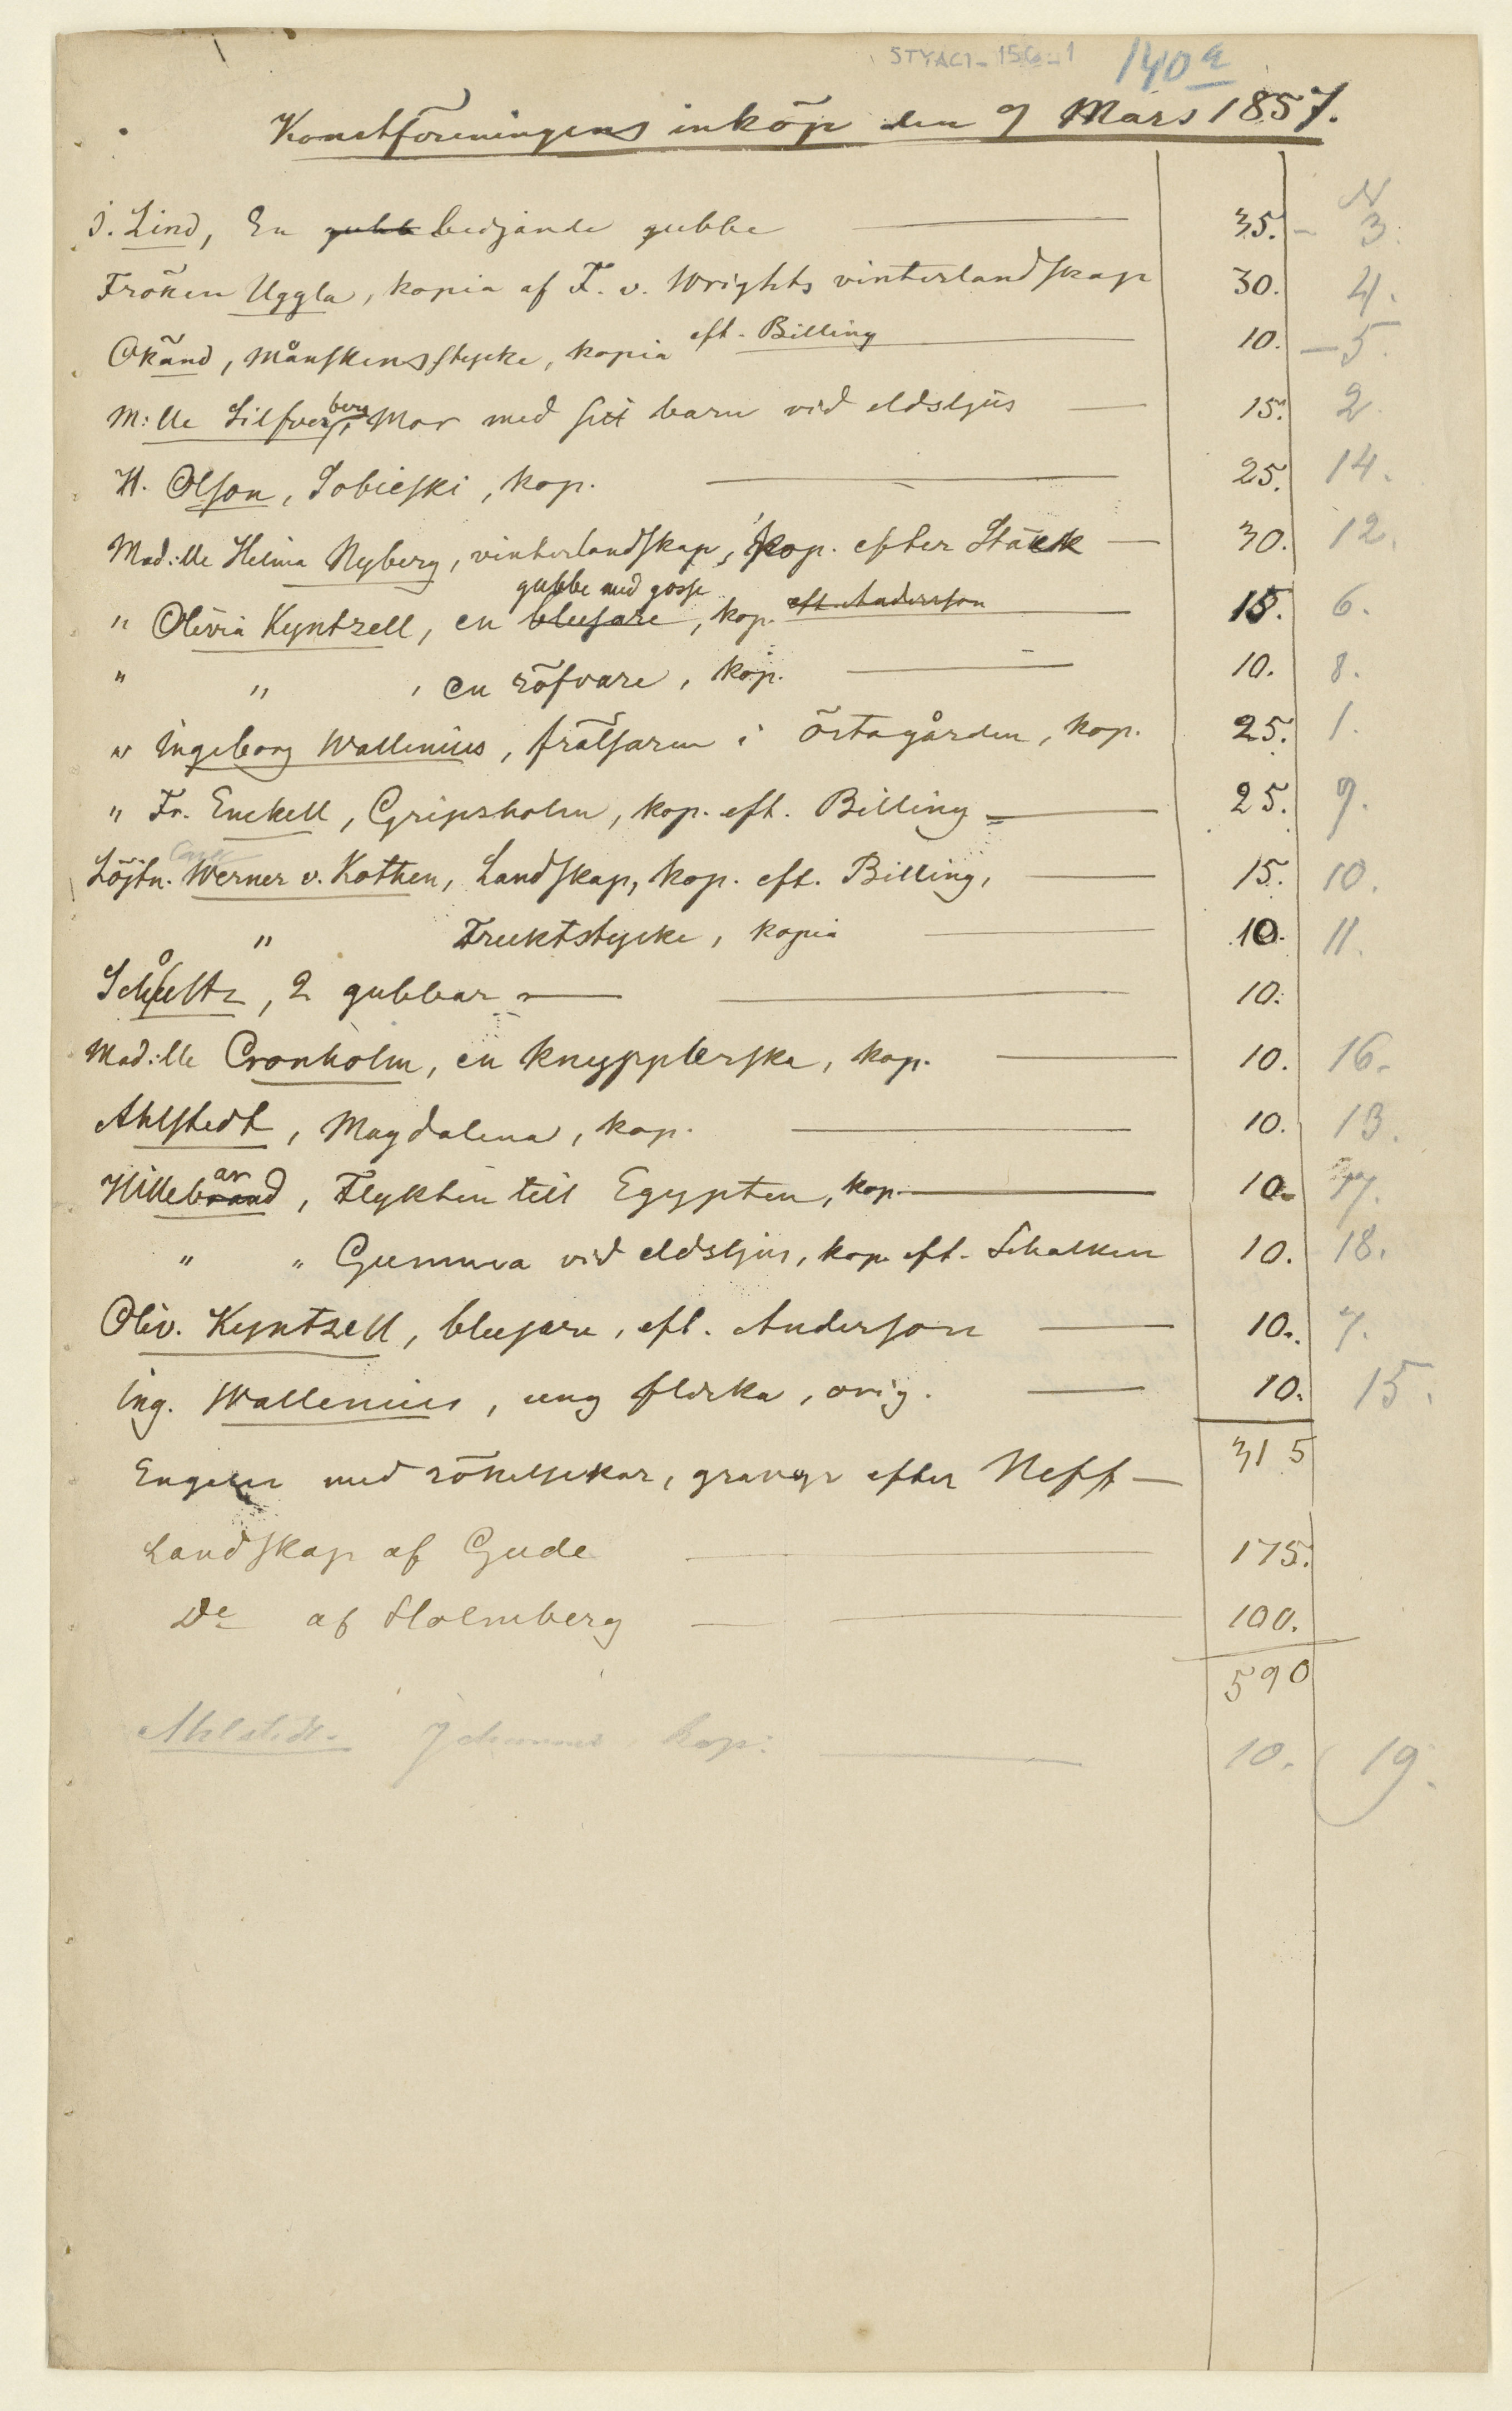 STYAC1-156-1 140a
Konstföreningens inköp den 9 Mars 1857.
N
J. Lind, En gubb bedjande gubbe 35. 3.
Fröken Uggla, kopia af F. v. Wrights vinterlandskap 30. 4.
Okänd, månskensstycke, kopia eft. Billing 10. 5.
M:lle Silfverberg, Mor med sitt barn vid eldsljus 15. 2.
H. Olson, Sobieski, kop. 25. 14.
Mad:lle Helina Nyberg, vinterlandskap, kop. efter Stäck 30. 12.
gubbe med gosse
" Olivia Kyntzell, en blusare, kop. eft. Andersson 15. 6.
" " , en röfvare, kop. 10. 8.
" Ingeborg Wallenius, frälsaren i örtagården, kop. 25. 1.
" Fr. Enckell, Gripsholm, kop. eft. Billing 25. 9.
Löjtn. Werner v. Kothen, Landskap, kop. eft. Billing, 15. 10.
" Fruktstycke, kopia 10. 11.
Schultz, 2 gubbar 10.
Mad:lle Cronholm, en knypplerska, kop. 10. 16.
Ahlstedt, Magdalena, kop. 10. 13.
ar
Hillebrand, Flykten till Egypten, kop. 10. 17.
" " Gumma vid eldsljus, kop. eft. Schalken 10. 18.
Oliv. Kyntzell, blusare, eft. Anderson 10. 7.
Ing. Wallenius, ung flicka, orig. 10. 15.
315
Engeln med rökelsekar, gravyr efter Neff
Landskap af Gude 175.
De af Holmberg 100.
590
Ahlstedt. Johannes, kop: 10. 19.